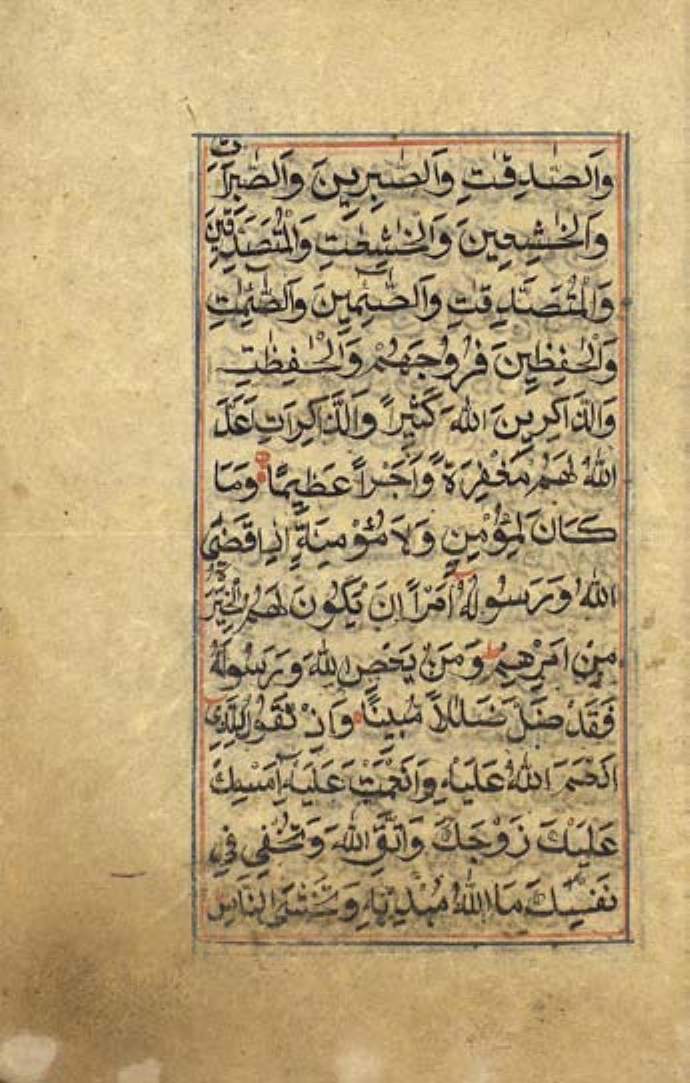 وَالصّٰدِقٰتِ وَالصّٰبِرِينَ وَالصّٰبِرَاتِ
وَالْخٰشِعِينَ وَالْخٰشِعٰتِ وَالْمُتَصَدِّقِينَ
وَالْمُتَصَدِّقٰتِ وَالصّٰٓئِمِينَ وَالصّٰٓئِمٰتِ
وَالْحٰفِظِينَ فُرُوجَهُمْ وَالْحٰفِظٰتِ
وَالذَّاكِرِينَ اللّٰهَ كَثِيْراً وَالذَّاكِرَاتِ اَعَدَّ
اللّٰهُ لَهُمْ مَغْفِرَةً وَاَجْراً عَظِيمًا وَمَا
كَانَ لِمُؤْمِنٍ وَلَا مُؤْمِنَةٍ اِذَا قَضَى
اللّٰهُ وَرَسُولُهُٓ اَمْرًا اَنْ يَكُونَ لَهُمُ الْخِيَرَةُ
مِنْ اَمْرِهِمْ ط وَمَنْ يَعْصِ اللّٰهَ وَرَسُولَهُ
فَقَدْ ضَلَّ ضَلٰلاً مُبِينًا وَاِذْ تَقُولُ لِلَّذِٓي
اَنْعَمَ اللّٰهُ عَلَيْهِ وَاَنْعَمْتَ عَلَيْهِ اَمْسِكْ
عَلَيْكَ زَوْجَكَ وَاتَّقِ اللّٰهَ وَتُخْفِي فِي
نَفْسِكَ مَا اللّٰهُ مُبْدِيهِ وَتَخْشَى النَّاسَ